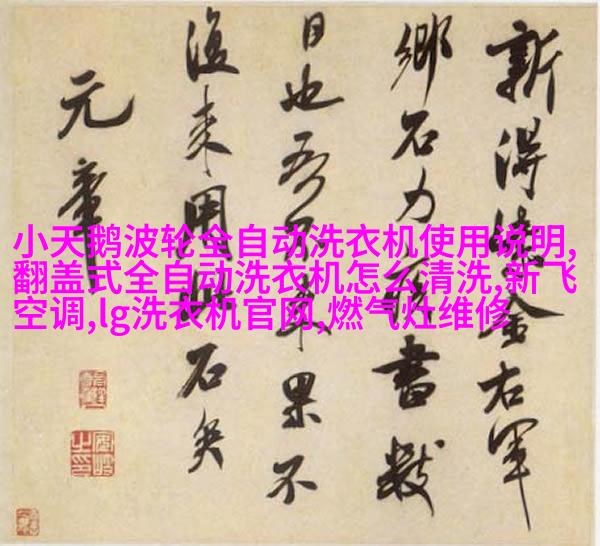 小天鹅波轮全自动洗衣机使用说明,
翻盖式全自动洗衣机怎么清洗,新飞
空调,lg洗衣机官网,燃气灶维修
新得紫金右軍
鄉石力疾書數
日也吾不来果不
復来用此石矣
元章